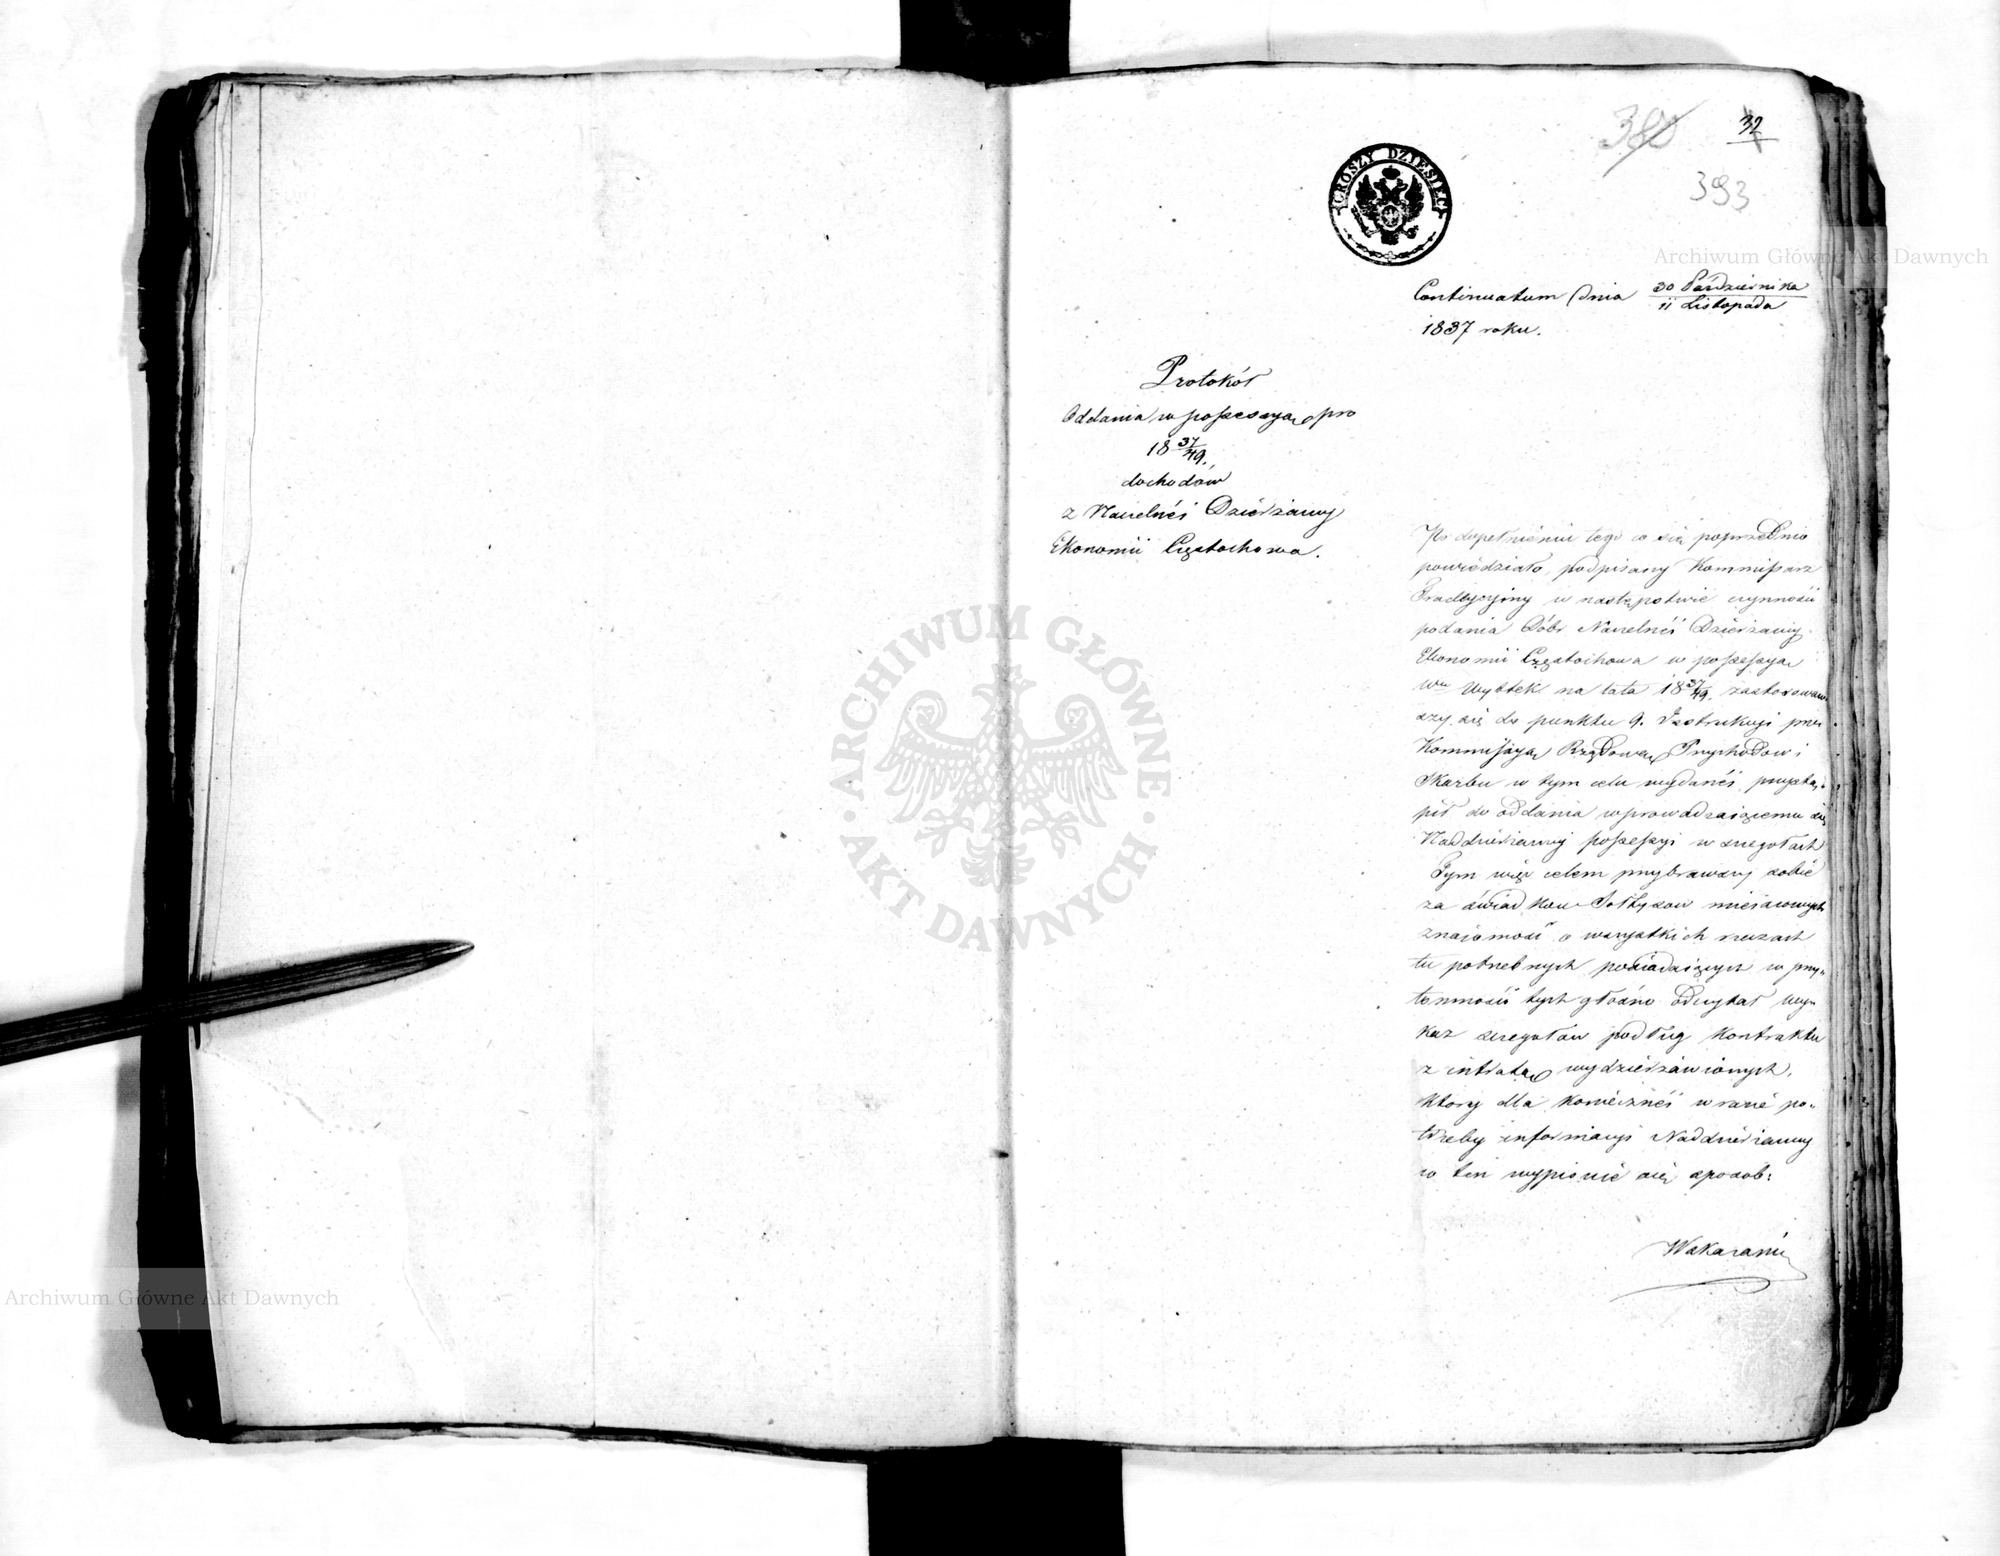 380
32
393
GROSZY DZIESIĘĆ
Continuatum dnia 30 Października
11 Listopada
1837 roku.
Protokół
Oddania w possessyą pro
18 37/49.
dochodów
z Naczelnéj Dzierżawy
Ekonomii Częstochowa.
Po dopełnieniu tego co się poprzednio
powiedziało, podpisany Kommissarz
Tradycyjny w następstwie czynności
podania Dóbr Naczelnéj Dzierżawy
Ekonomii Częstochowa w possessyą
na lata 18 37/49. zastosowaw
szy się do punktu 9. Instrukcyi przez
Kommissyą Rządową Przychodów i
Skarbu w tym celu wydanéj, przystą,
pił do oddania wprowadzaiącemu się
Naddzierżawcy possessyi w szczegółach
Tym więc celem przybrawszy sobie
za świadków Sołtysów mieyscowych
znaiomość o wszystkich rzeczach
tu potrzebnych posiadaiących w przy,,
tomności tych głośno odczytał Wy,,
kaz szczegółów podług Kontraktu
z intratą wydzierżawionych,
który dla koniecznéj w razie po,,
trzeby informacyi Naddzierżawcy
w ten wypisuie się sposob:
Archiwum Główne Akt Dawnych
Archiwum Główne Akt Dawnych
ARCHIWUM GŁÓWNE AKT DAWNYCH